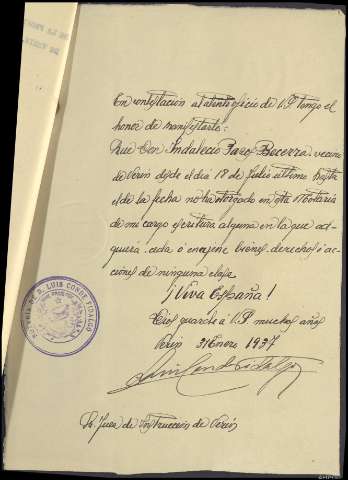 En contestacion al atento oficio de V.S. tengo el
honor de manifestarle:
Que Don Indalecio Pazos Becerra, vecino
de Verin desde el dia 18 de Julio ultimo hasta
el de la fecha no ha otorgado en esta Notaria
de mi cargo escritura alguna en la que ad-
quiera, ceda ó enagene bienes, derechos ó ac-
ciones de ninguna clase.
¡Viva España!
Dios guarde á V.S. muchos años
Verin 31 Enero 1937
Luis Conde Fidalgo
Sr. Juez de Instrucción de Verin
NOTARIA DE D. LUIS CONDE FIDALGO